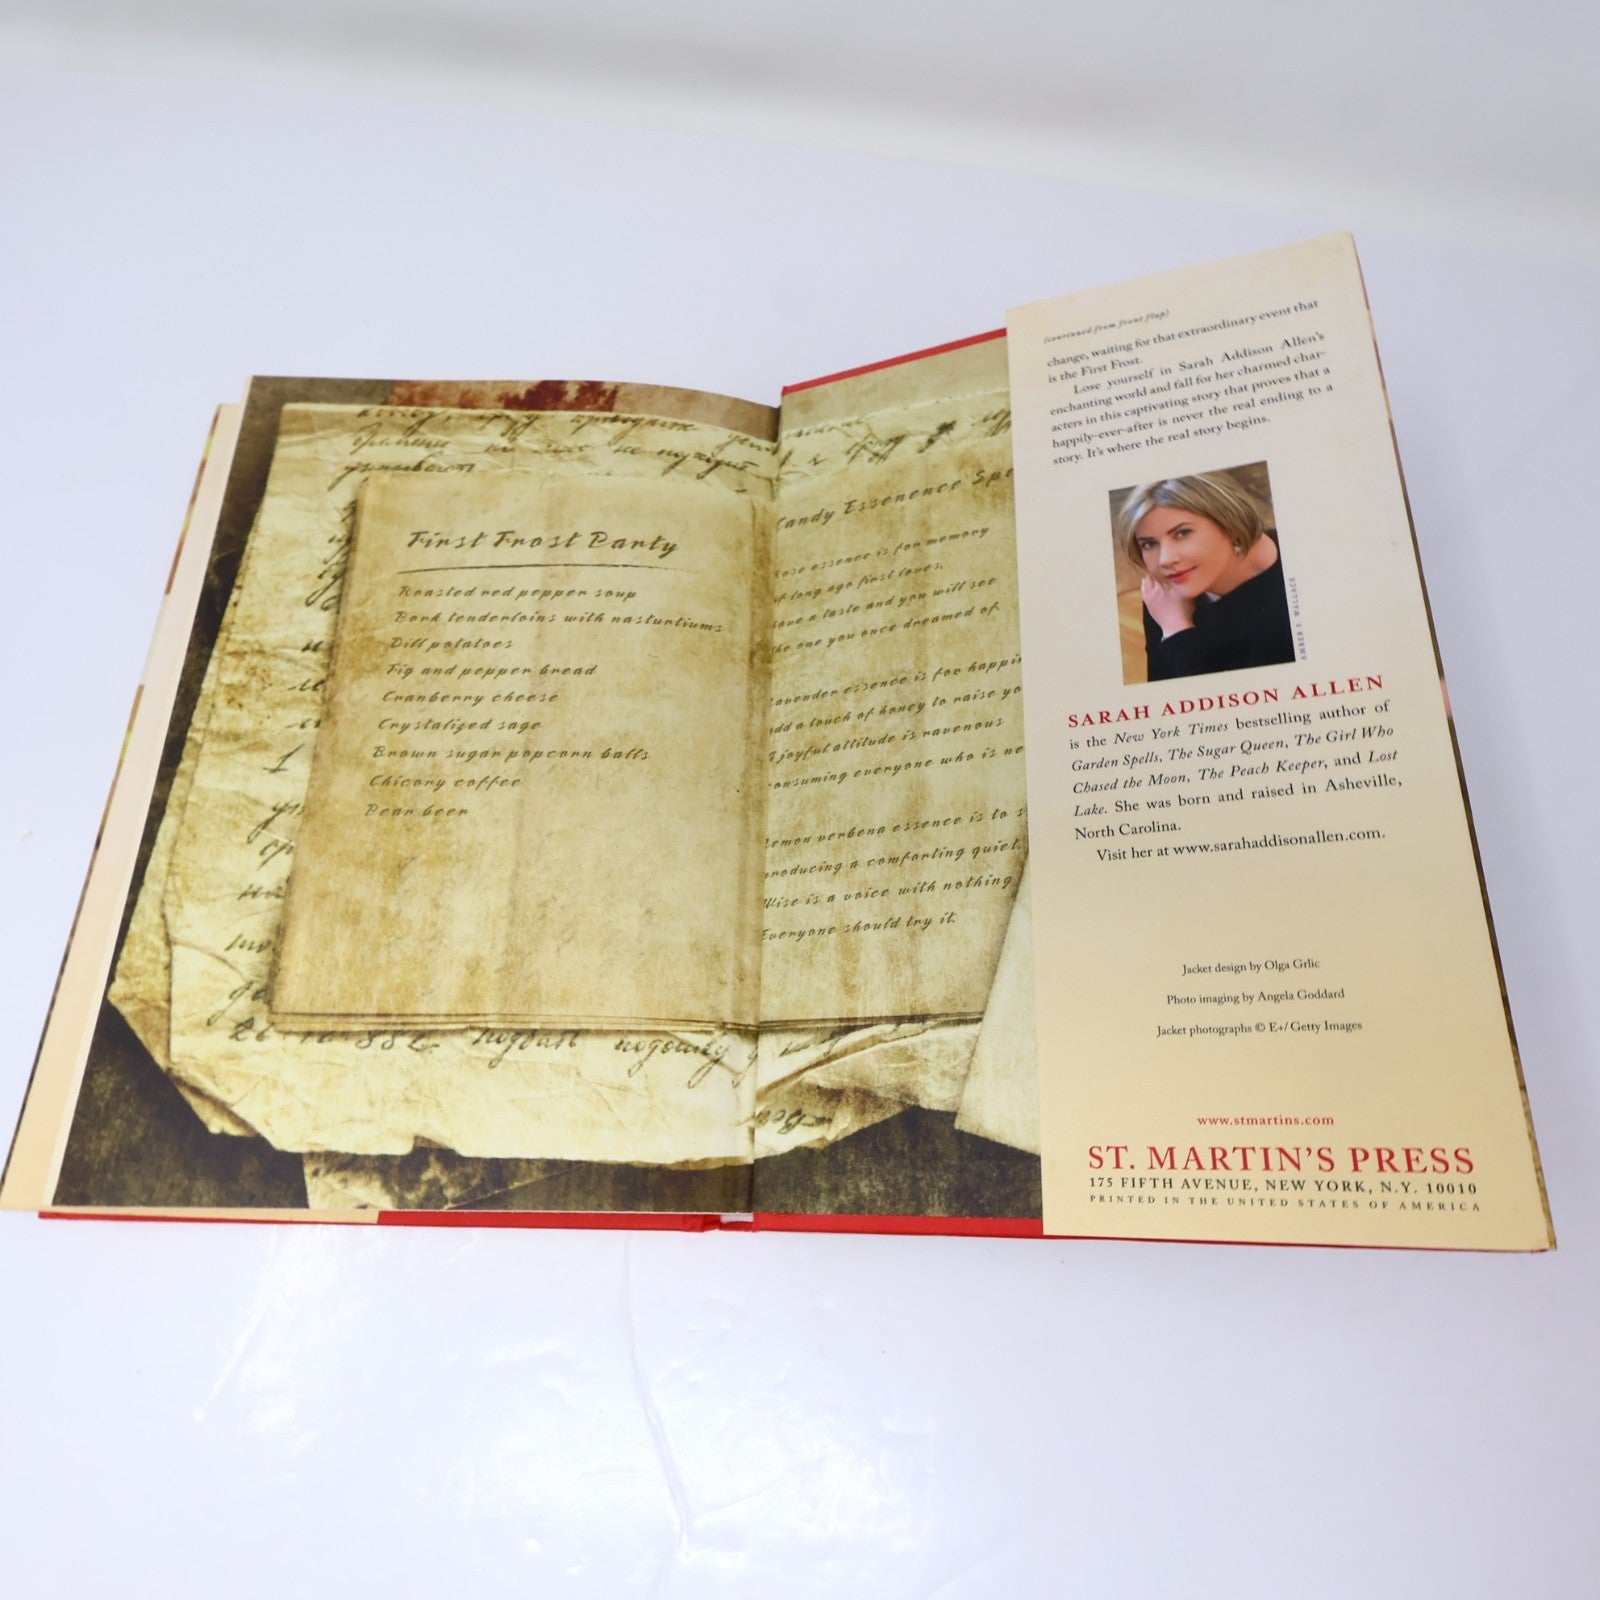 First Frost Party
Roasted red pepper soup
Pork tenderloins with nasturtiums
Dill potatoes
Fig and pepper bread
Cranberry cheese
Crystalized sage
Brown sugar popcorn balls
Chicory coffee
Pear beer
Candy Essenence
essence is for memory
long ago first loves,
a taste and you will see
one you once dreamed of.
essence is for
a touch of honey to raise
joyful attitude is ravenous
consuming everyone who is
verbena essence is to
producing a comforting quiet.
Wise is a voice with nothing
Everyone should try it.
(continued from front flap)
change, waiting for that extraordinary event that
is the First Frost.
Lose yourself in Sarah Addison Allen's
enchanting world and fall for her charmed char-
acters in this captivating story that proves that a
happily-ever-after is never the real ending to a
story. It's where the real story begins.
AMBER S. WALLACE
SARAH ADDISON ALLEN
is the New York Times bestselling author of
Garden Spells, The Sugar Queen, The Girl Who
Chased the Moon, The Peach Keeper, and Lost
Lake. She was born and raised in Asheville,
North Carolina.
Visit her at www.sarahaddisonallen.com.
Jacket design by Olga Grlic
Photo imaging by Angela Goddard
Jacket photographs © E+/Getty Images
www.stmartins.com
ST. MARTIN'S PRESS
175 FIFTH AVENUE, NEW YORK, N.Y. 10010
PRINTED IN THE UNITED STATES OF AMERICA